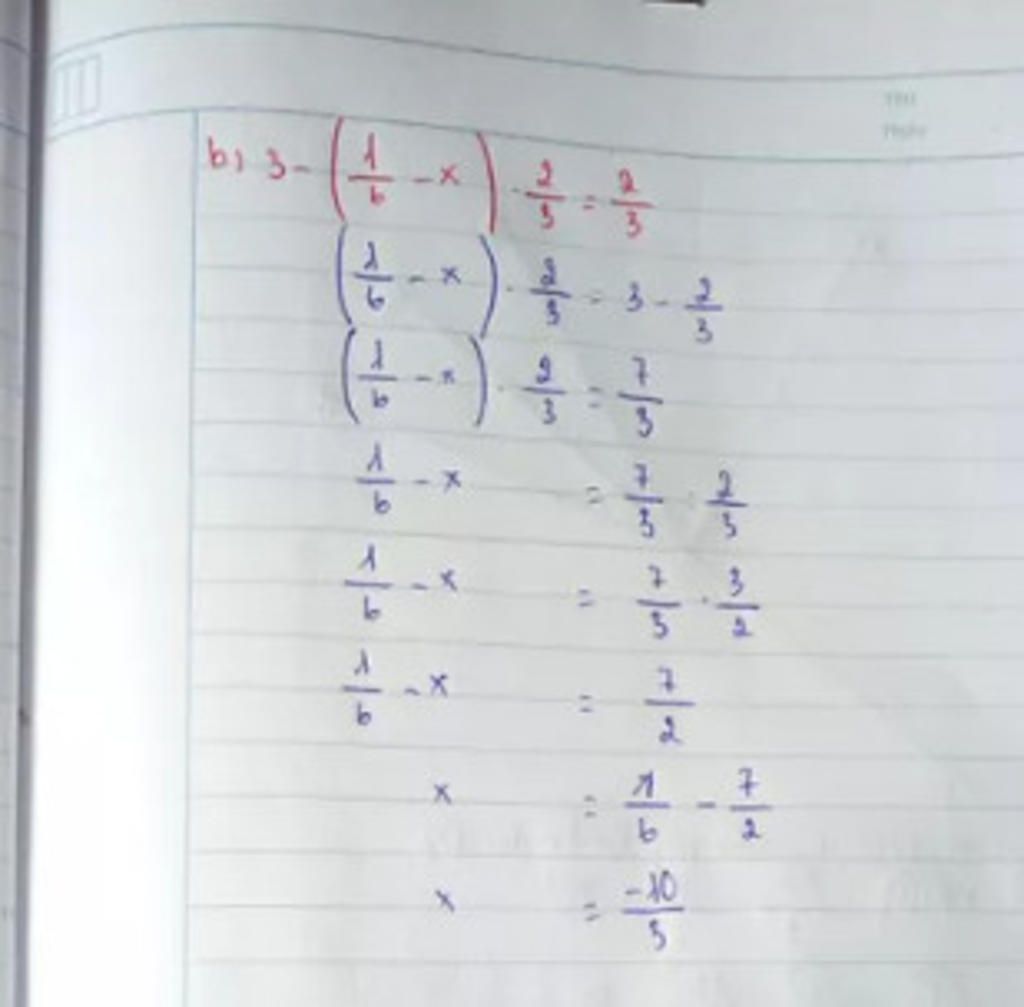 b) 3 - (1/6 - x) . 2/3 = 2/3
(1/6 - x) . 2/3 = 3 - 2/3
(1/6 - x) . 2/3 = 7/3
1/6 - x = 7/3 : 2/3
1/6 - x = 7/3 . 3/2
1/6 - x = 7/2
x = 1/6 - 7/2
x = -10/3